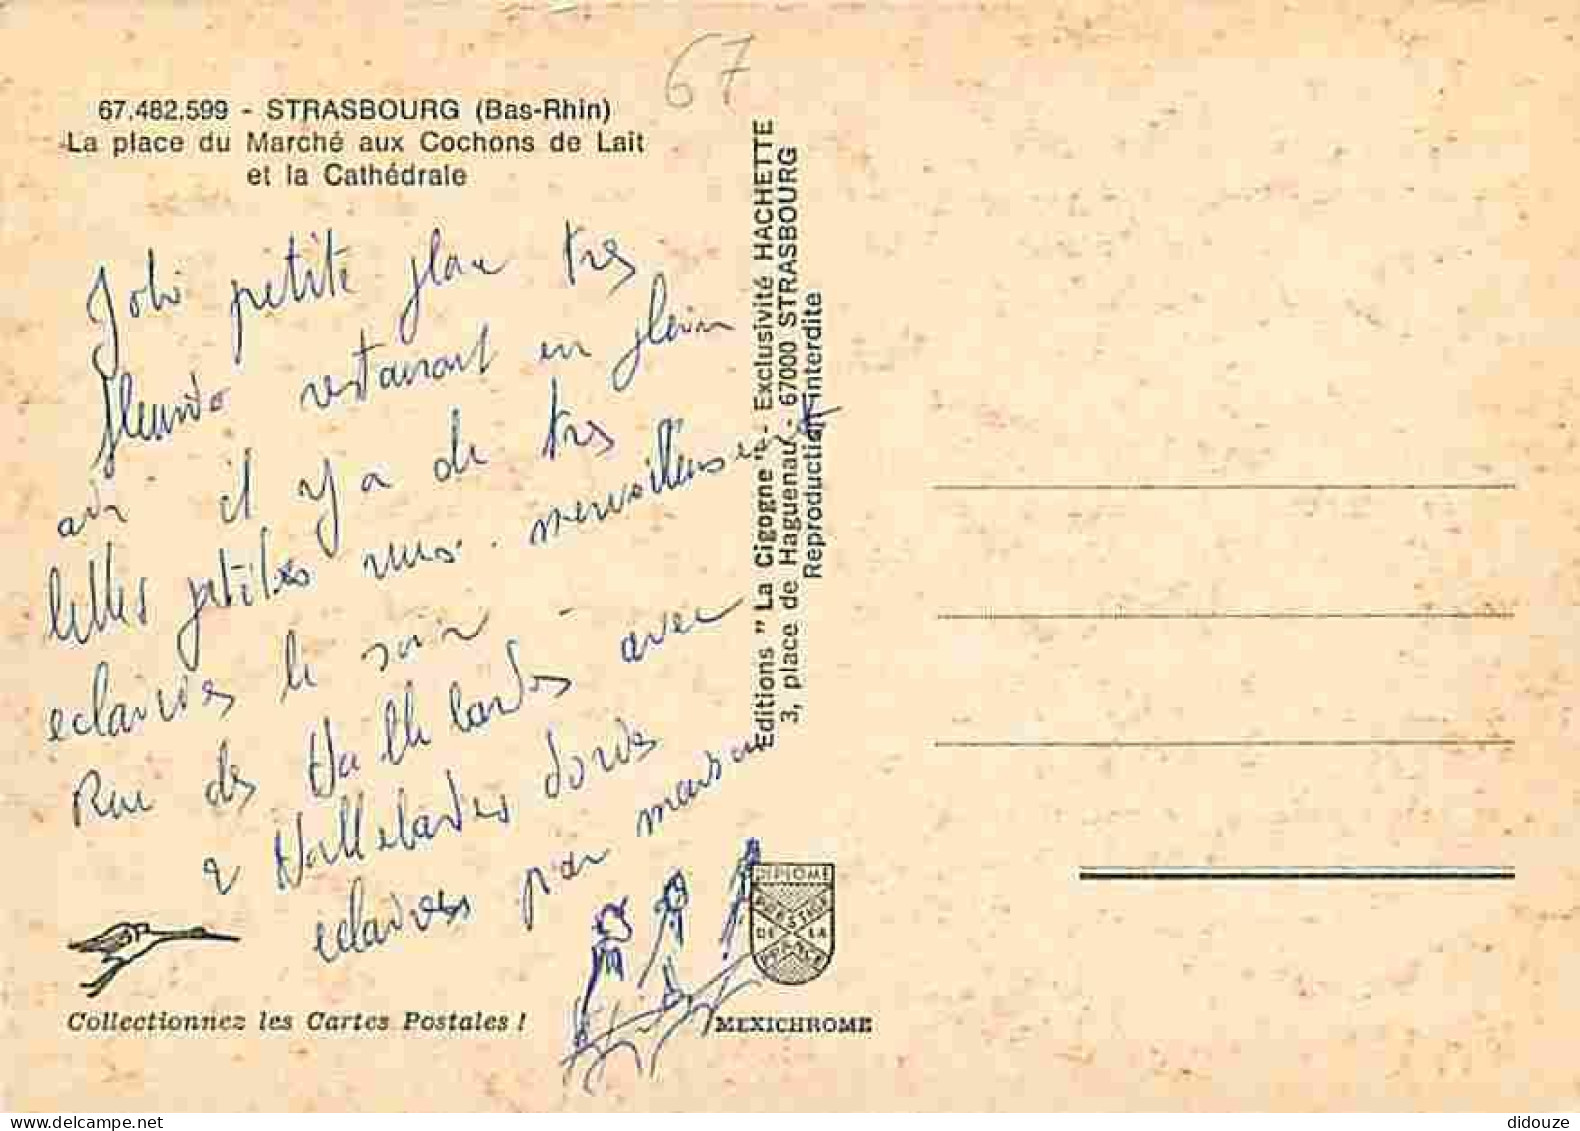 67
67.482.599 - STRASBOURG (Bas-Rhin)
La place du Marché aux Cochons de Lait
et la Cathédrale
Joli petite place tres
fleurido restaurant en plein
air il y a de tres
belles petites rues. merveilleusement
eclairées le soir
Rue des Hallebardes avec
2 Hallebardes dorées
eclairées par maison
Collectionnez les Cartes Postales !
Editions " La Cigogne " - Exclusivité HACHETTE
3, place de Haguenau - 67000 STRASBOURG
Reproduction interdite
DIPLOME
PRESTIGE
DE LA
FRANCE
MEXICHROME
www.delcampe.net
didouze